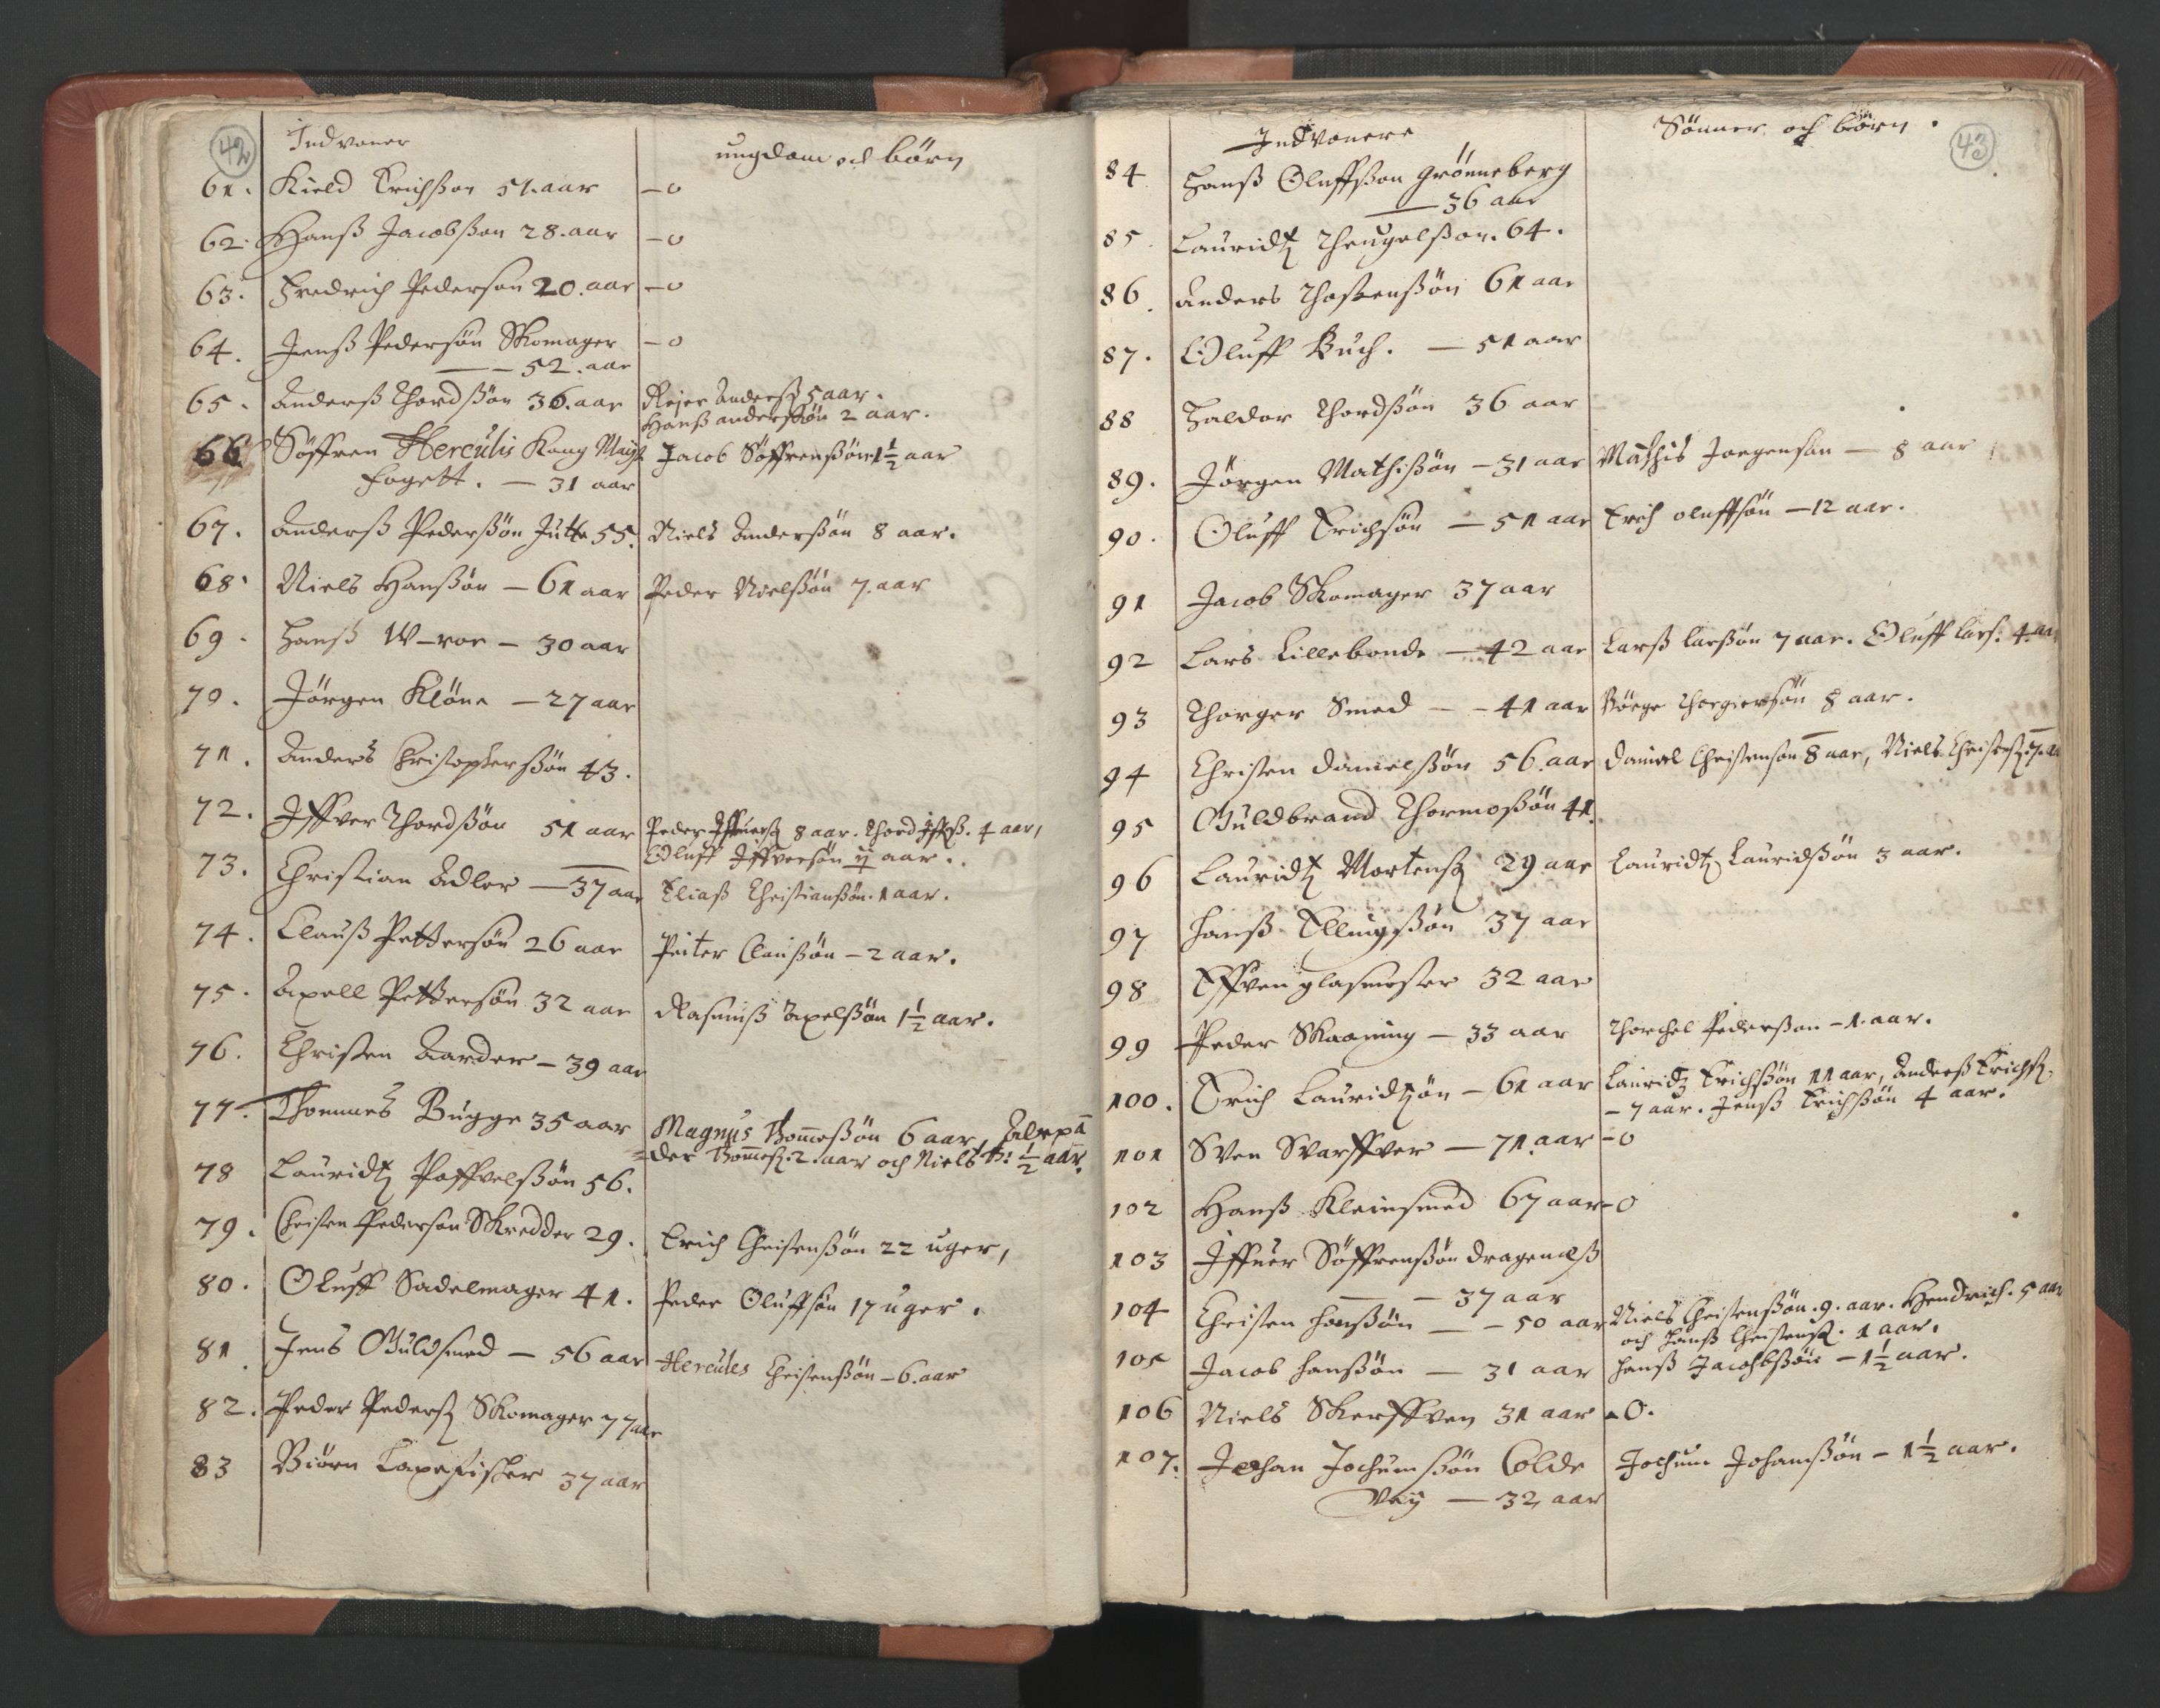 42
Indvoner ungdom och børn
61. Kield Erichßon 51. aar —0
62. Hanß Jacobßon 28. aar —0
63. Fredrich Pederson 20. aar —0
64. Jenß Pedersøn Skomager —0
— 52. aar
65. Anderß Thordßøn 36. aar Rejer Anderß 5 aar.
Hanß anderßøn 2 aar.
66 Søffren Herculis Kong Mayt Jacob Søffrenßøn 1½ aar
fogett. — 31 aar
67. Anderß Pederßøn Jutte 55. Niels Anderßøn 8 aar.
68. Niels Hanßøn — 61 aar Peder Nielßøn 7. aar
69. Hanß W-vor — 30 aar
70. Jørgen Kløne — 27 aar
71. Anders Christopherßøn 43.
72. Iffver Thordßøn 51 aar Peder Iffuerß 8 aar. Thord Iffß. 4 aar,
Oluff Iffversøn aar.
73. Christian Adler — 37 aar Eliaß Christianßøn. 1 aar.
74. Clauß Pettersøn 26 aar Peiter Clausßøn — 2 aar.
75. Axell Pettersøn 32 aar Rasmuß Axelßøn 1½ aar.
76. Christen Aarder — 39 aar
77. Thommes Bugge 35 aar Magnus Thomeßøn 6 aar, Alexan
=der Thomeß. 2. aar och Niels Th: ½ aar.
78 Lauridtz Poffvelßøn 56.
79. Christen Pederson Skredder 29. Erich Christenßøn 22 uger,
80. Oluff Sadelmager 41. Peder Oluffsøn 17 uger.
81 Jens Guldsmed — 56 aar Hercules Christenßøn — 6. aar
82. Peder Pederß Skomager 77 aar
83 Biørn Taxefisker 37 aar
43
Indvonere Sønner och børn.
84 Hanß Oluffßon Grønneberg
— 36 aar
85. Lauridtz Theugelßon. 64.
86. Anders Thostenßøn 61 aar
87. Oluff Buch. — 51 aar
88 Haldor Thordßøn 36 aar
89. Jørgen Mathißøn — 31 aar Mathis Jørgensøn — 8 aar
90. Oluff Erichsøn — 51 aar Erich oluffsøn — 12 aar.
91 Jacob Skomager 37 aar
92 Lars Lillebonde — 42 aar Larß larßøn 7 aar. Oluff lars: 4. aar
93 Thorger Smed — 41 aar Børge Thorgiersøn 8 aar.
94 Christen Danielßøn 56. aar Daniel Christensøn 8 aar, Niels Christenß. 7. aar
95 Guldbrand Thormoßøn 41.
96 Lauridtz Mortenß 29 aar Lauridtz Lauridßøn 3 aar.
97 Hanß Ellingßøn 37 aar
98 Effven glasmester 32 aar
99 Peder Skaaning — 33 aar Thorchel Pederßøn — 1. aar.
100. Erich Lauridtzøn — 61 aar Lauridtz Erichßøn 11 aar, Anderß Erichß.
— 7 aar. Jenß Erichßøn 4 aar.
101 Sven Svarffver — 71. aar —0
102 Hanß Kleinsmed 67 aar —0
103 Iffuer Søffrenßøn dragenæß
— 37 aar
104 Christen Hanßøn — 50 aar Niels Christenßøn. 9. aar. Hendrich. 5 aar
och Hanß Christenß. 1 aar.
105 Jacob Hanßøn — 31 aar Hanß Jacobßøn — 1½ aar.
106 Niels Skerffven 31 aar —0.
107. Johan Jochumßøn Colde Jochum Johanßøn — 1½ aar.
Veij — 32 aar